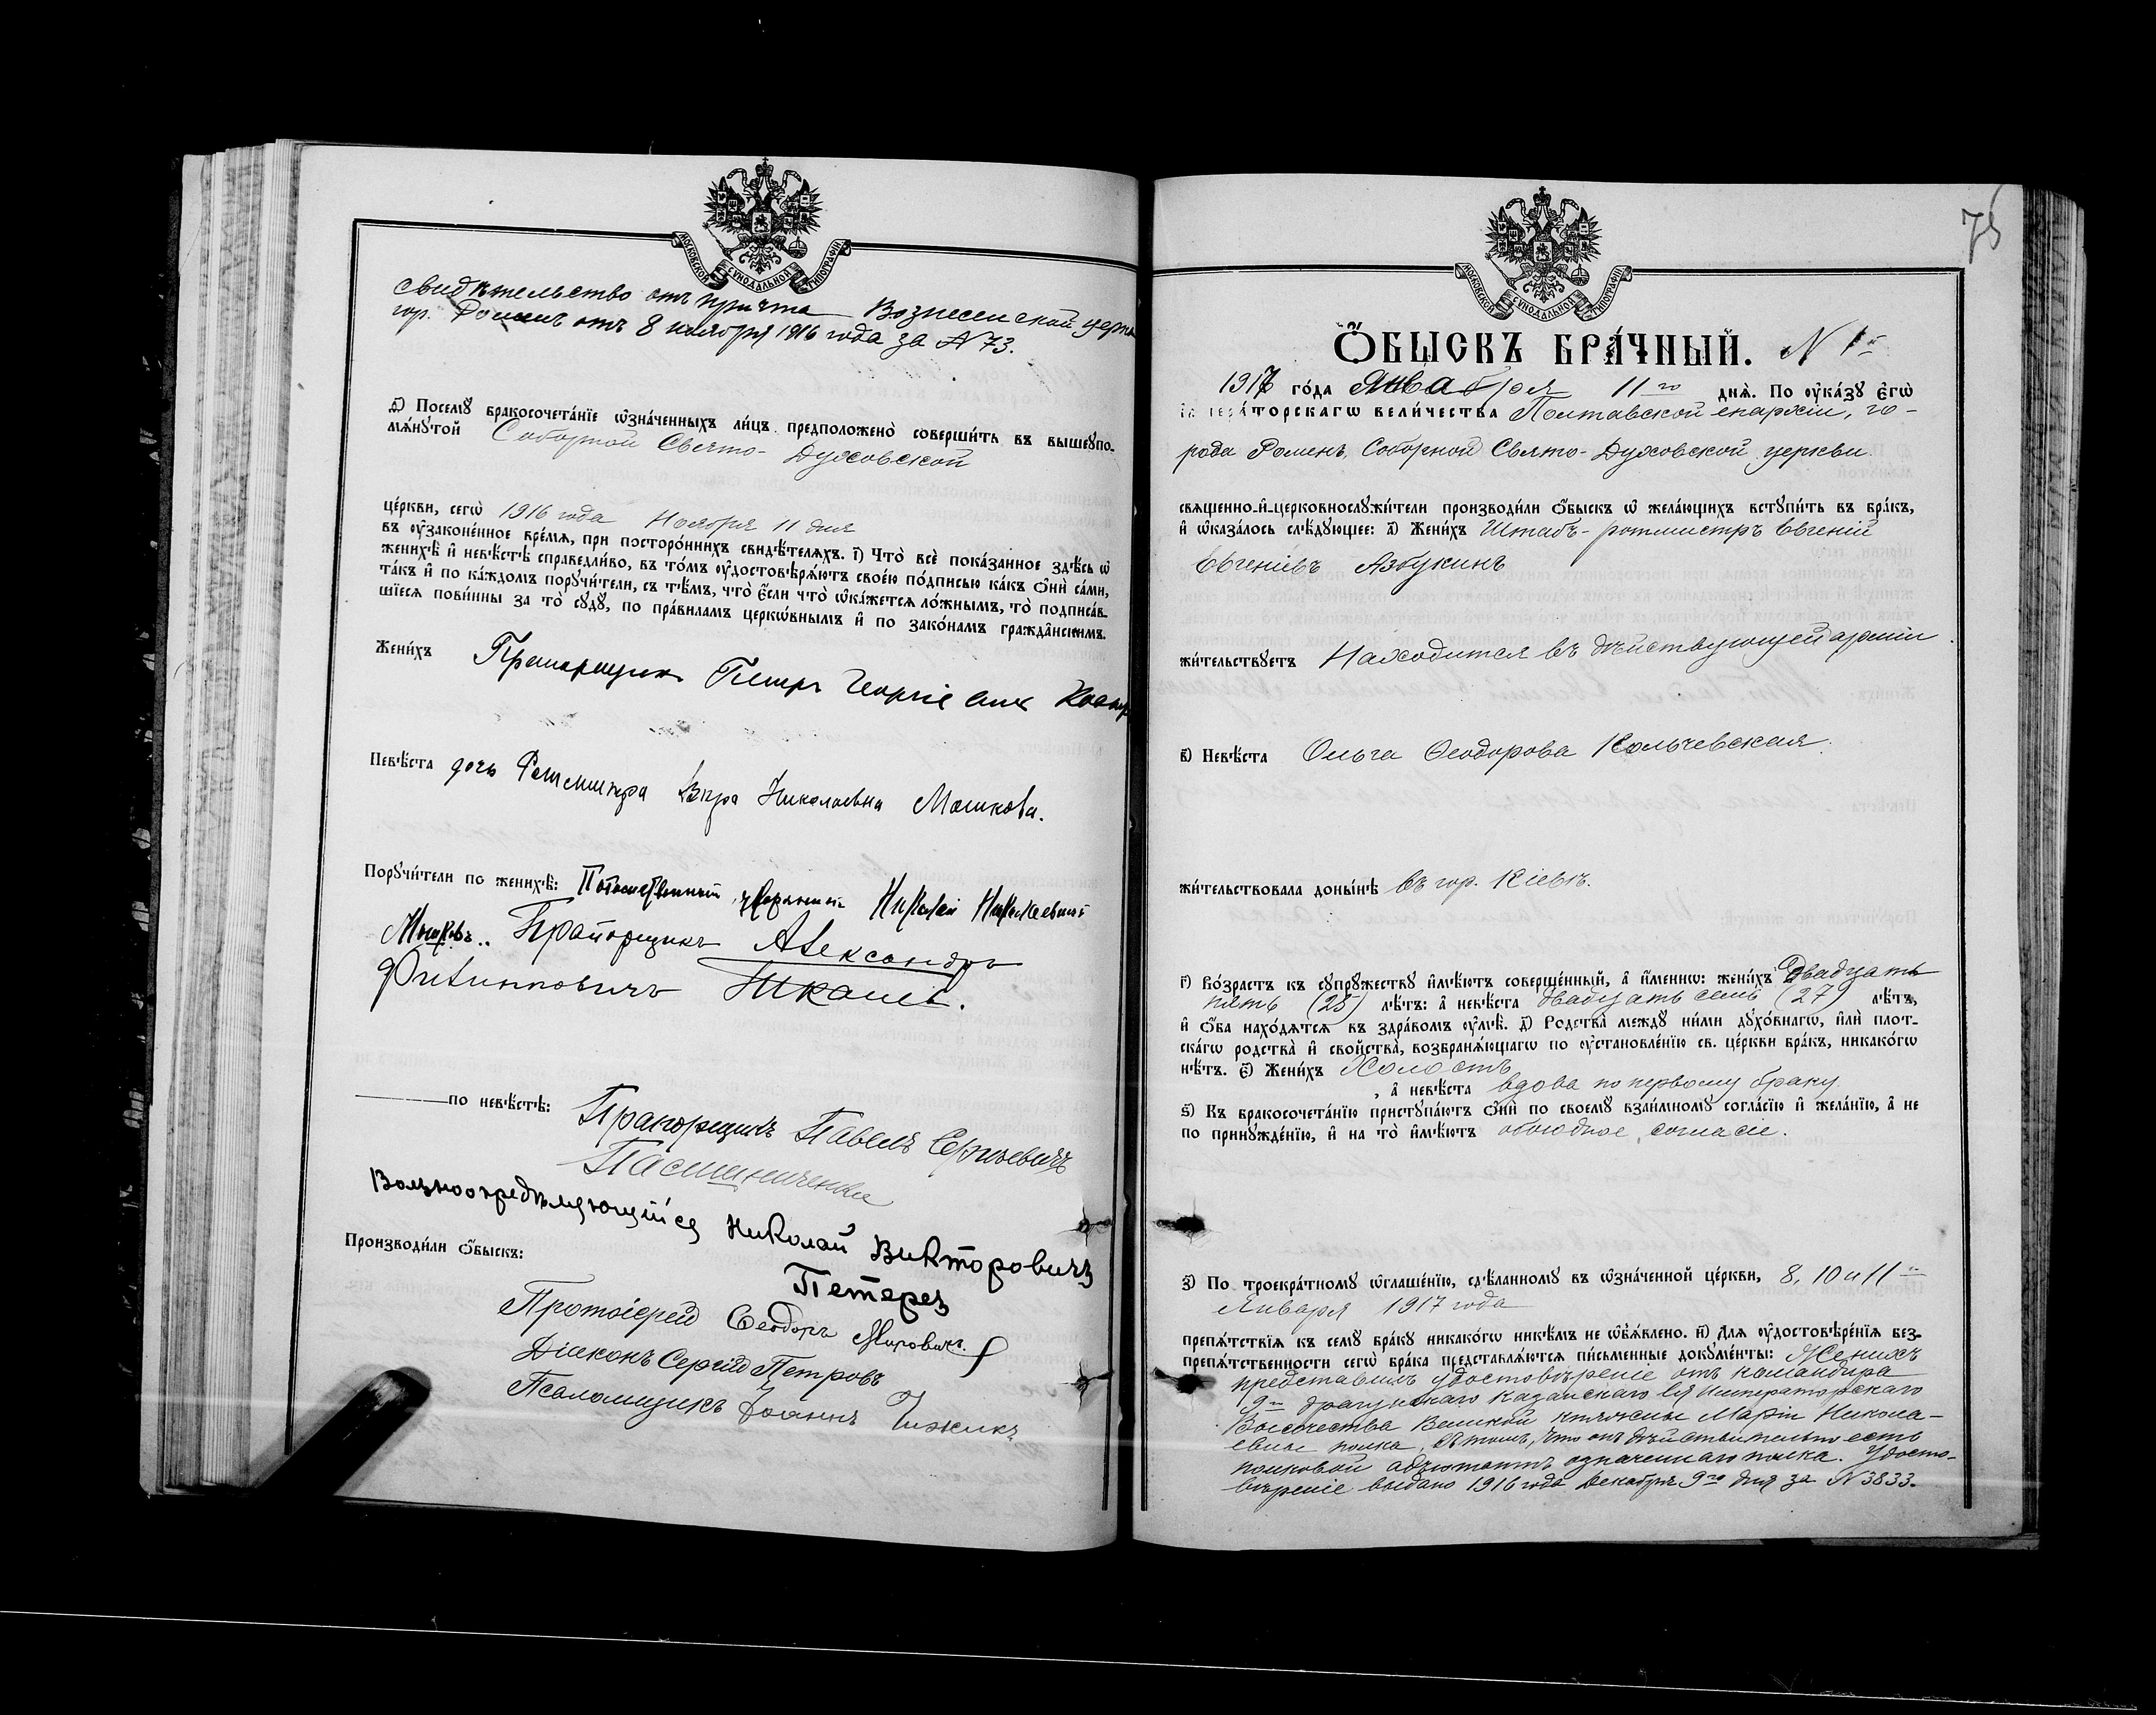 МОСКОВСКОЙ СѴНОДАЛЬНОЙ ТИПОГРАФІИ
свидѣтельство отъ причта Вознесенской
гор. Роменъ отъ 8 ноября 1916 года за № 73.
ѳ҃) Посемꙋ̀ бракосочета́нїе ѡ҆зна́ченныхъ ли́цъ предположено̀ соверши́ть въ вышеꙋпо-
мѧ́нꙋтой Соборной Свято-Духовской
це́ркви, сегѡ̀ 1916 года Ноября 11 дня
въ ᲂу҆зако́ненное вре́мѧ, при посторо́ннихъ свидѣ́телѧхъ. і҃) Что̀ всѐ пока́занное здѣ́сь ѡ҆
женихѣ̀ и҆ невѣ́стѣ справедли́во, въ то́мъ ᲂу҆достовѣрѧ́ютъ свое́ю по́дписью ка́къ ѻ҆нѝ са́ми,
та́къ и҆ по ка́ждомъ порꙋчи́тели, съ тѣ́мъ, что̀ є҆́сли что̀ ѡ҆ка́жетсѧ ло́жнымъ, то̀ подписа́в-
шїесѧ пови́нны за то̀ сꙋдꙋ̀, по пра́виламъ церкѡ́внымъ и҆ по зако́намъ гражда̑нскимъ.
Жени́хъ Прапорщикъ Петръ Георгіевичъ
Невѣ́ста дочь Ротмистра Вѣра Николаевна Мошкова.
Порꙋчи́тели по женихѣ̀: Потомственный дворянинъ Николай Николаевичъ
Мошковъ.. Прапорщикъ Александръ
Филипповичъ
по невѣ́стѣ: Прапорщикъ Павелъ Сергѣевичъ
Вольноопредѣляющійся Николай Викторовичъ
Петерсъ
Производи́ли ѻ҆́быскъ:
Протоіерей Ѳеодоръ Мировичъ.
Діаконъ Сергій Петровъ
Псаломщикъ Іоаннъ Чижикъ
75
МОСКОВСКОЙ СѴНОДАЛЬНОЙ ТИПОГРАФІИ
Ѻ҆́БЫСКЪ БРА́ЧНЫЙ. N 1й
1917 го́да Января 11го днѧ̀. По ᲂу҆ка́зꙋ є҆гѡ̀
и҆мпера́торскагѡ вели́чества Полтавской епархіи, го-
рода Роменъ, Соборной Свято-Духовской церкви
свѧще́нно-и҆-церковнослꙋжи́тели производи́ли ѻ҆́быскъ ѡ҆ жела́ющихъ встꙋпи́ть въ бра́къ,
и҆ ѡ҆каза́лось слѣ́дꙋющее: а҃) Жени́хъ Штабъ-ротмистръ Евгеній
Евгеніевъ Азбукинъ
жи́тельствꙋетъ Находится въ дѣйствующей арміи.
в҃) Невѣ́ста Ольга Ѳеодорова Кольчевская.
жи́тельствовала доны́нѣ въ гор. Кіевѣ.
г҃) Во́зрастъ къ сꙋпрꙋ́жествꙋ и҆мѣ́ютъ соверше́нный, а҆ и҆́меннѡ: жени́хъ двадцать
пять (25) лѣ́тъ: а҆ невѣ́ста двадцать семь (27) лѣ́тъ,
и҆ ѻ҆́ба нахо́дѧтсѧ въ здра́вомъ ᲂу҆мѣ̀. д҃) Родства̀ ме́ждꙋ ни́ми дꙋхо́внагѡ, и҆лѝ плот-
ска́гѡ родства̀ и҆ свойства̀, возбранѧ́ющагѡ по ᲂу҆становле́нїю св. це́ркви бра́къ, никако́гѡ
нѣ́тъ. є҃) Жени́хъ Холостъ
, а҆ невѣ́ста вдова по первому браку.
ѕ҃) Къ бракосочета́нїю пристꙋпа́ютъ ѻ҆нѝ по своемꙋ̀ взаи́мномꙋ согла́сїю и҆ жела́нїю, а҆ не
по принꙋжде́нїю, и҆ на то̀ и҆мѣ́ютъ обоюдное согласіе.
з҃) По троекра́тномꙋ ѡ҆глаше́нїю, сдѣ́ланномꙋ въ ѡ҆зна́ченной це́ркви, 8, 10 и 11го
Января 1917 года
препѧ́тствїѧ къ семꙋ̀ бра́кꙋ никако́гѡ никѣ́мъ не ѡ҆б̾ѧ́влено. и҃) Для ᲂу҆достовѣре́нїѧ без-
препѧ́тственности сегѡ̀ бра́ка представлѧ́ютсѧ пи́сьменные докꙋме́нты: Женихъ
представилъ удостовѣреніе отъ командира
9го драгунскаго Казанскаго Ея Императорскаго
Высочества Великой Княжны Маріи Никола-
евны полка, въ томъ, что онъ дѣйствительно есть
полковой адъютантъ означеннаго полка. Удосто-
вѣреніе выдано 1916 года Декабря 9го дня за N 3833.